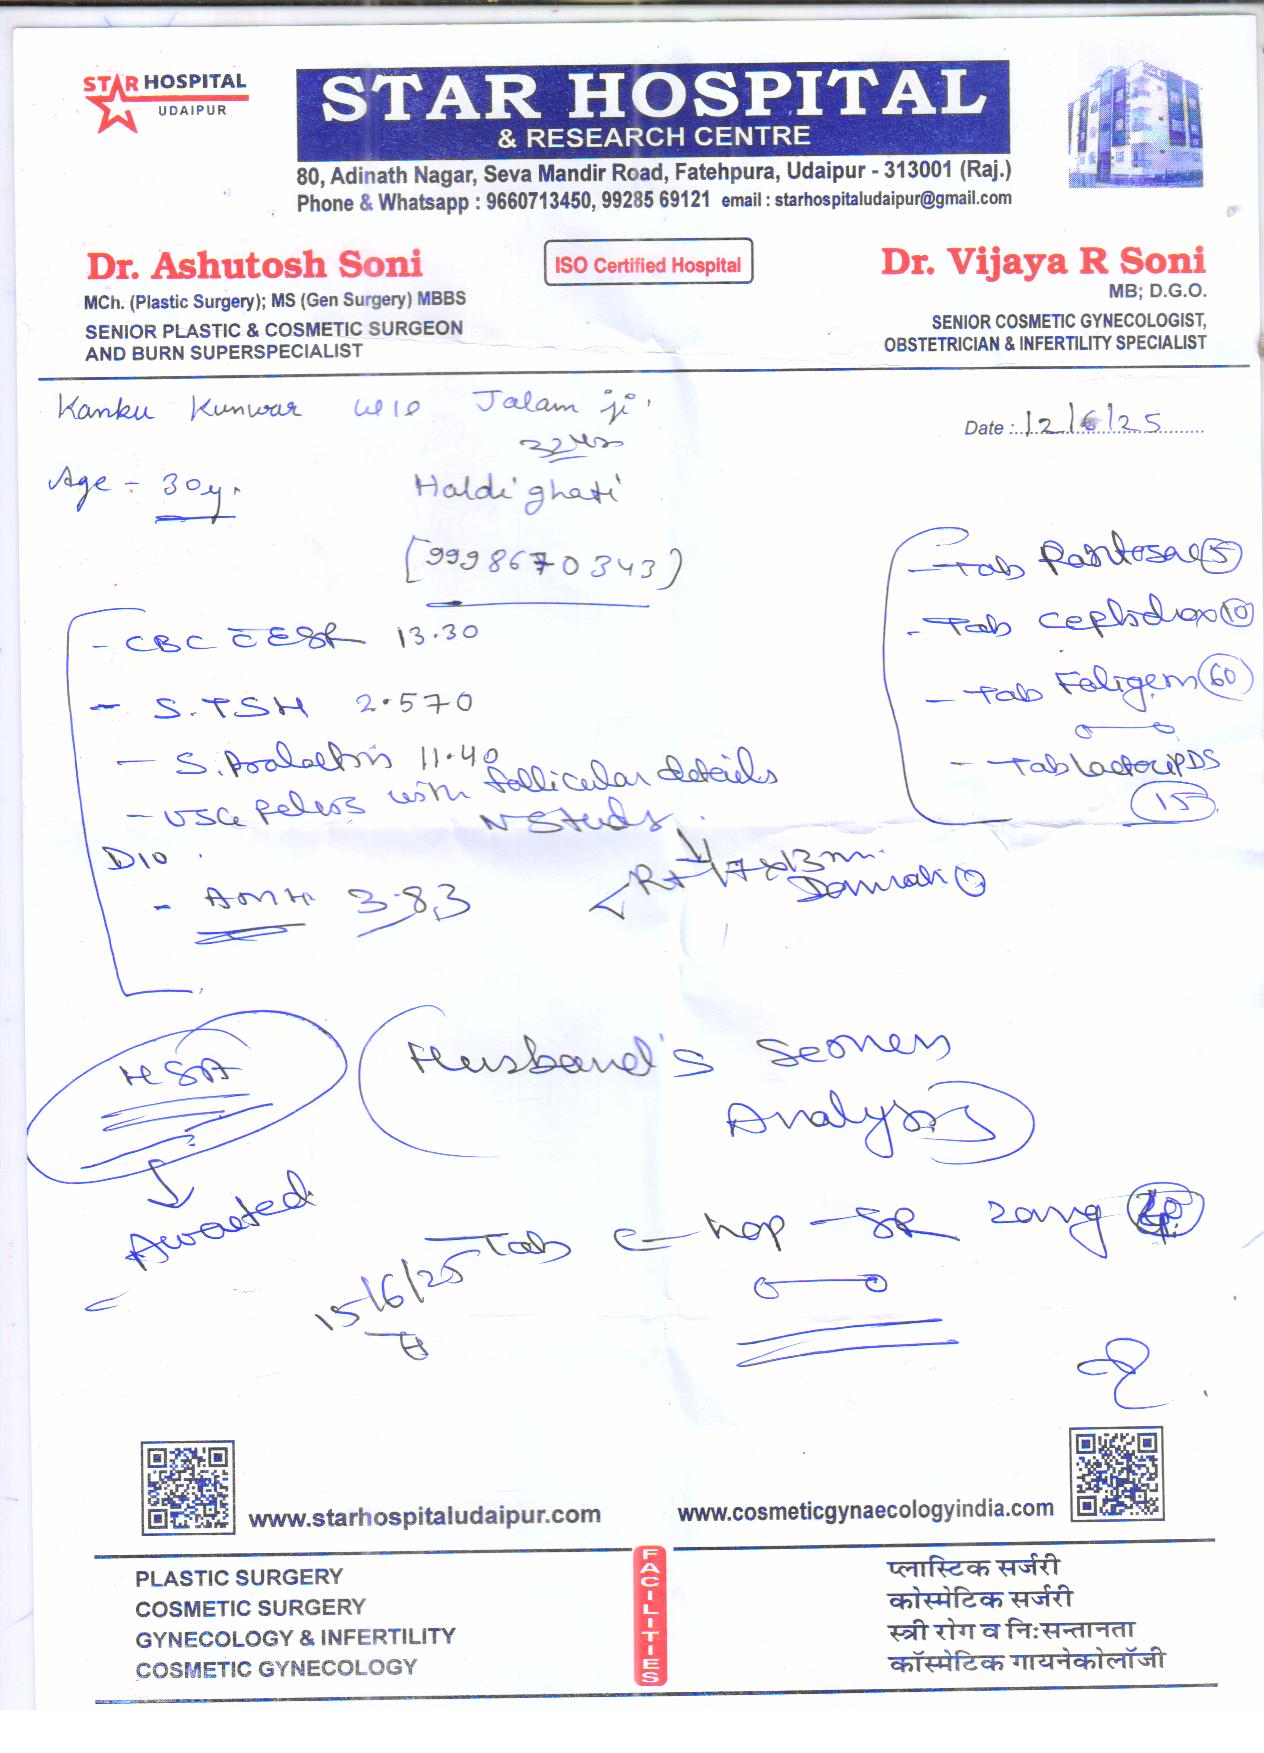 STAR HOSPITAL
UDAIPUR
STAR HOSPITAL
& RESEARCH CENTRE
80, Adinath Nagar, Seva Mandir Road, Fatehpura, Udaipur - 313001 (Raj.)
Phone & Whatsapp : 9660713450, 99285 69121 email : starhospitaludaipur@gmail.com
Dr. Ashutosh Soni
MCh. (Plastic Surgery); MS (Gen Surgery) MBBS
SENIOR PLASTIC & COSMETIC SURGEON
AND BURN SUPERSPECIALIST
ISO Certified Hospital
Dr. Vijaya R Soni
MB; D.G.O.
SENIOR COSMETIC GYNECOLOGIST,
OBSTETRICIAN & INFERTILITY SPECIALIST
Kanku Kunwar w/o Jalam ji.
32 yrs
Date : 12/6/25
Age - 30y.
Haldi ghati
[9998670343)
- CBC c ESR 13.30
- S. TSH 2.570
- S. Prolactin 11.40
- USG pelvis with follicular details
N Study.
D10
- AMH 3.83
Rt 17x13mm.
- Tab Pantosec 5
- Tab Cephdox 10
- Tab Foligem 60
- Tab 15
HSA
Awaited
Husband's Semen
Analysis
15/6/25
- Tab SR
www.starhospitaludaipur.com
www.cosmeticgynaecologyindia.com
PLASTIC SURGERY
COSMETIC SURGERY
GYNECOLOGY & INFERTILITY
COSMETIC GYNECOLOGY
FACILITIES
प्लास्टिक सर्जरी
कोस्मेटिक सर्जरी
स्त्री रोग व निःसन्तानता
कॉस्मेटिक गायनेकोलॉजी